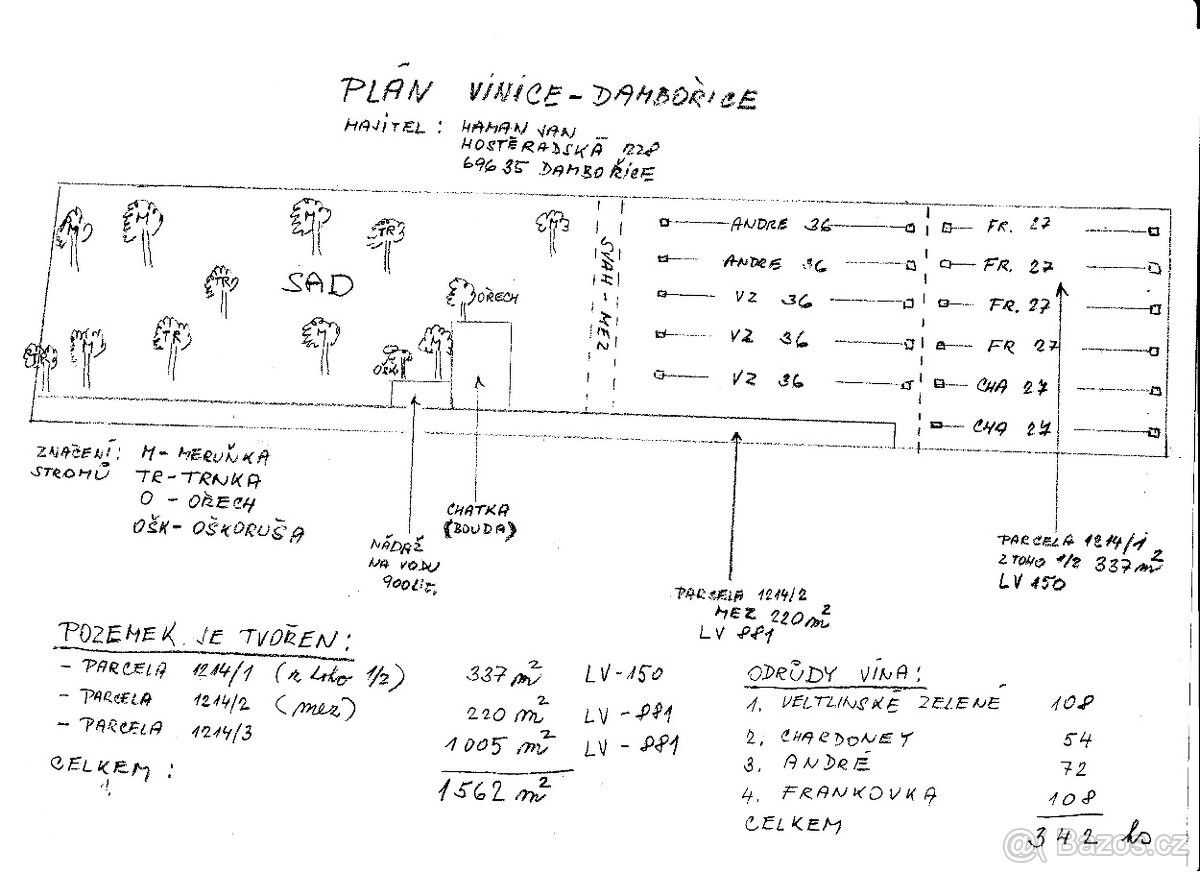 PLÁN VINICE - DAMBOŘICE
MAJITEL : HAMAN JAN
HOSTĚRADSKÁ 228
69635 DAMBOŘICE
M
M
M
TR
M
TR
SAD
OŘECH
TR
M
TR
M
M
OŠK
SVAH - MEZ
ANDRE 36
ANDRE 36
VZ 36
VZ 36
VZ 36
FR. 27
FR. 27
FR. 27
FR 27
CHA 27
CHA 27
ZNAČENÍ : M - MERUŇKA
STROMŮ TR - TRNKA
O - OŘECH
OŠK - OŠKORUŠA
NÁDRŽ
NA VODU
900 Lit.
CHATKA
(BOUDA)
PARCELA 1214/2
MEZ 220 m²
LV 881
PARCELA 1214/1
Z TOHO 1/2 337 m²
LV 150
POZEMEK JE TVOŘEN :
- PARCELA 1214/1 (z toho 1/2) 337 m² LV - 150
- PARCELA 1214/2 (mez) 220 m² LV - 881
- PARCELA 1214/3 1005 m² LV - 881
CELKEM : 1562 m²
ODRŮDY VÍNA :
1. VELTLINSKÉ ZELENÉ 108
2. CHARDONEY 54
3. ANDRÉ 72
4. FRANKOVKA 108
CELKEM 342 ks
@ Bazos.cz